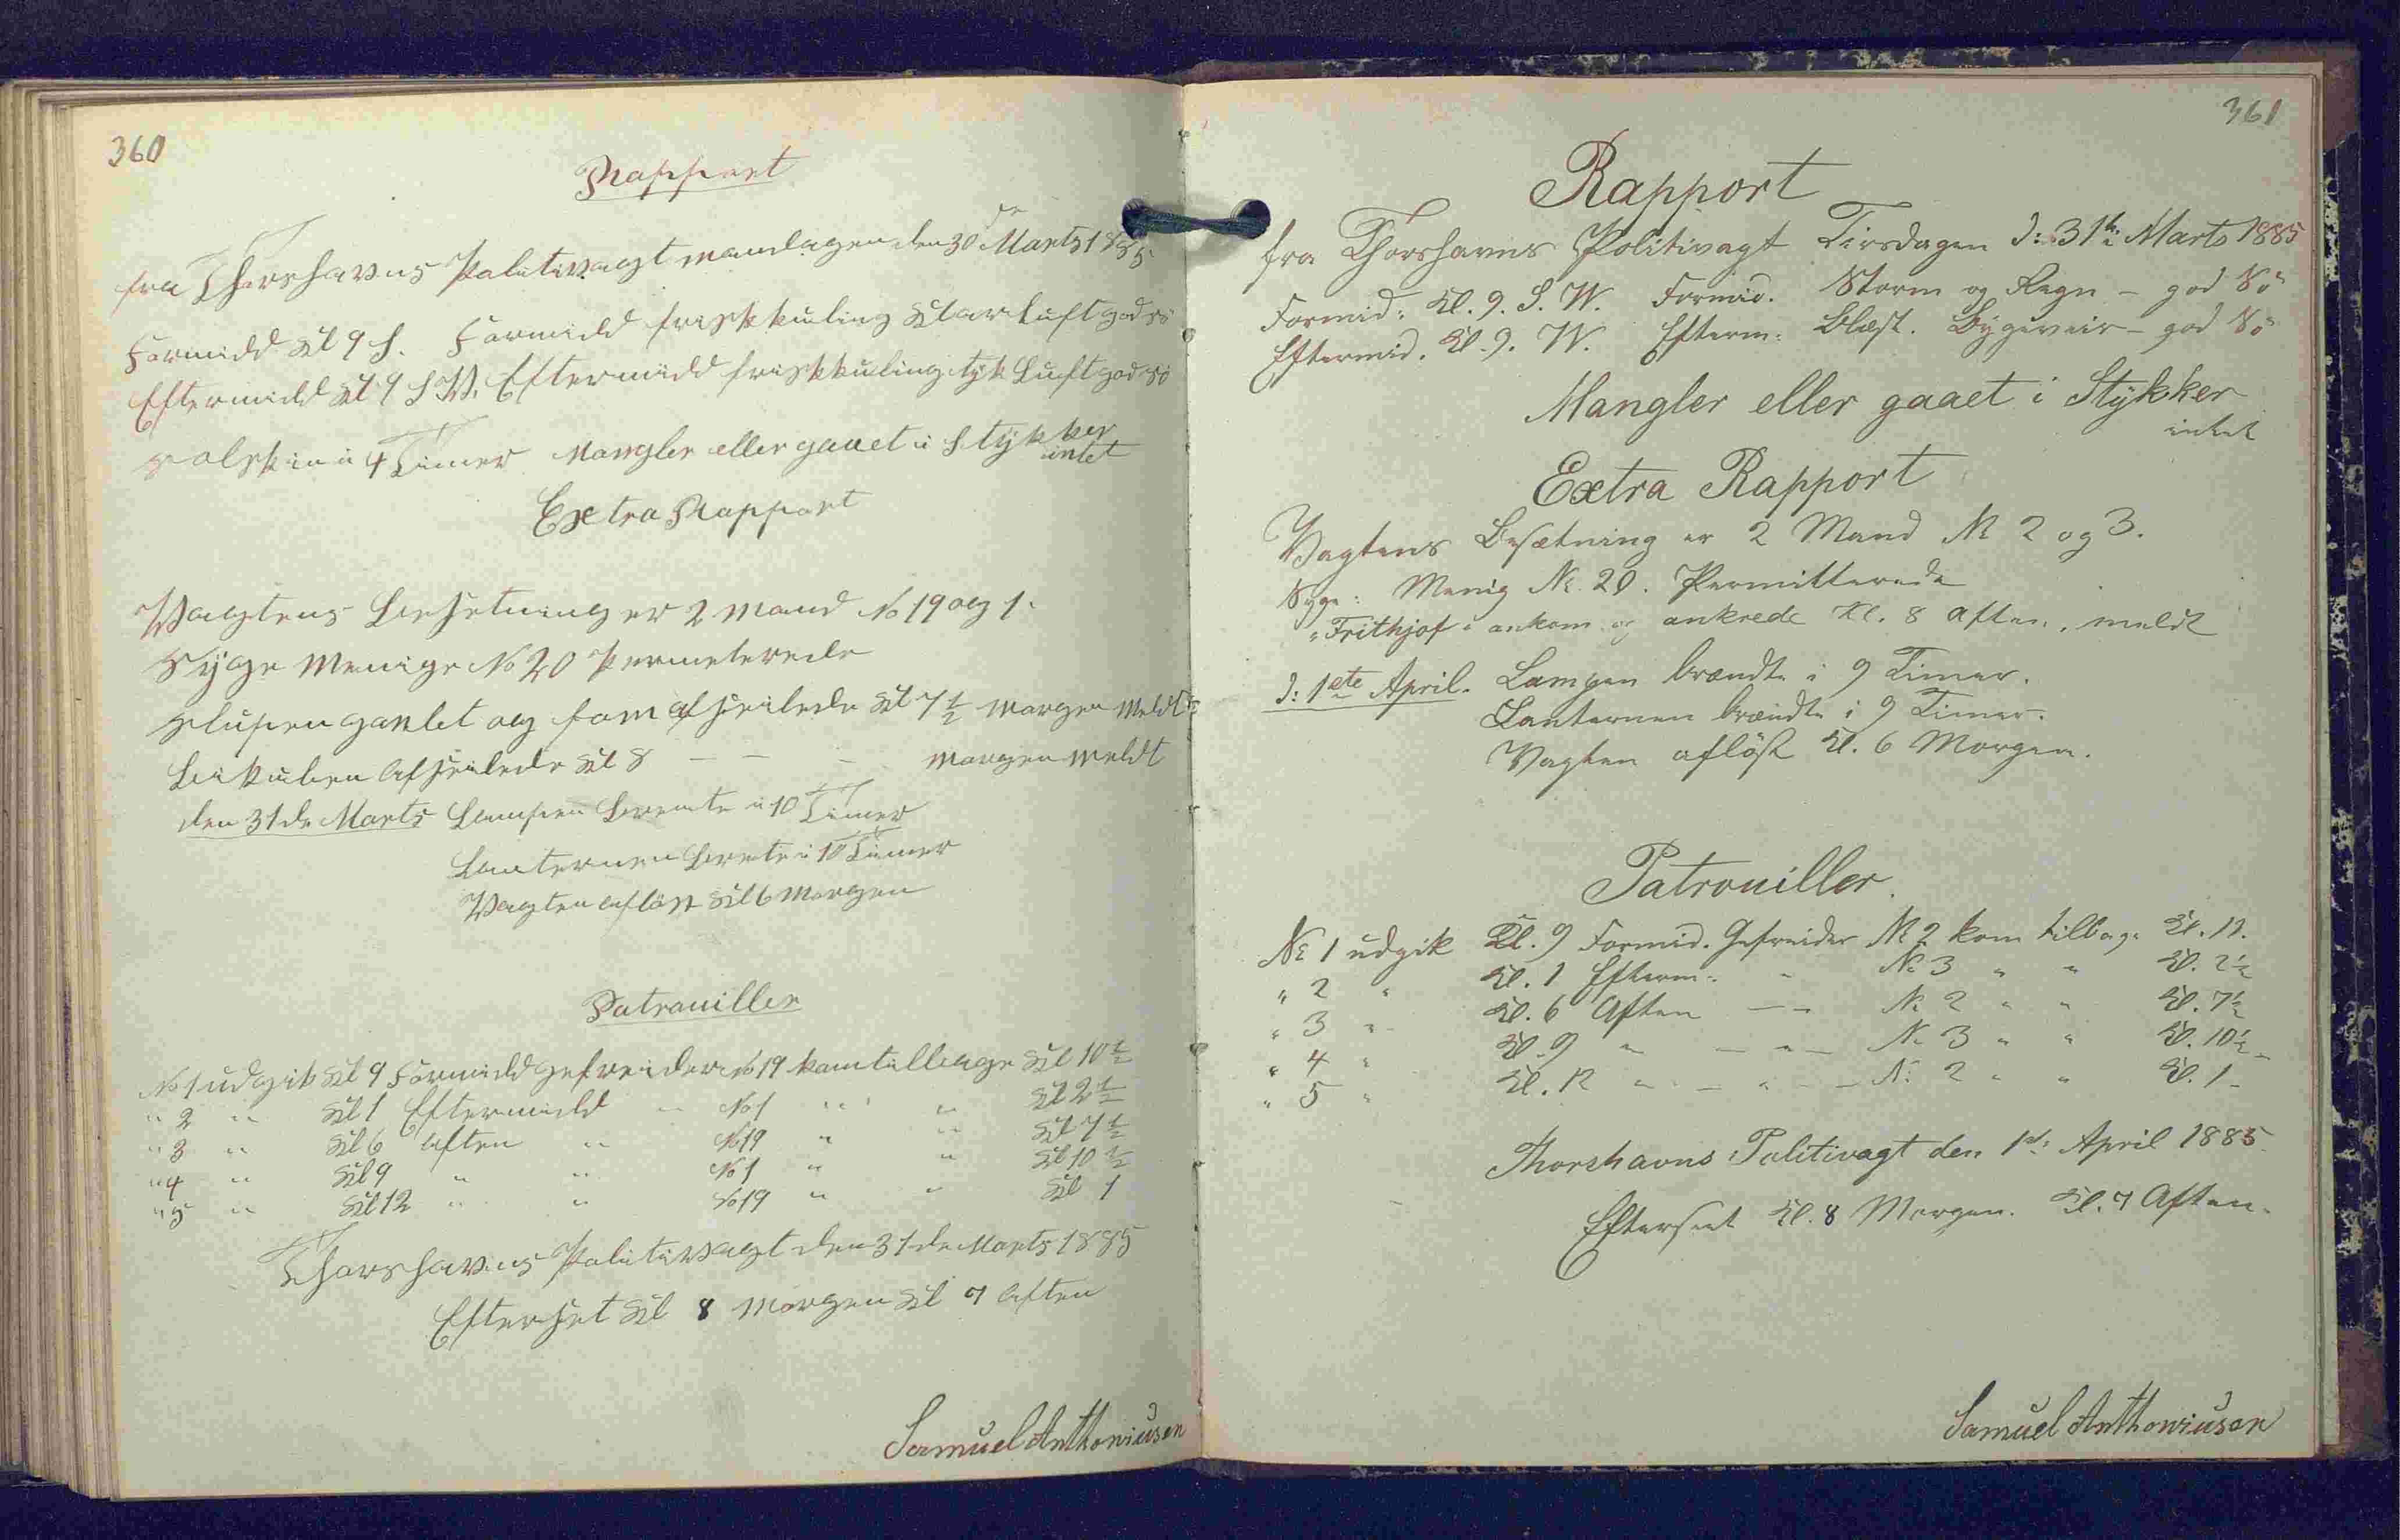 360
Rapport
fra Thorshavns Politivagt mandagen den 30de Marts 1885.
Formidd Kl 9 S. Formidd frisk kuling Klar Luft god sö
Eftermidd Kl 9 S.W. Eftermidd frisk kuling tyk Luft god sö
solskin i 4 Timer Mangler eller gaaet i Stykker
intet
Extra Rapport
Vagtens Besetning er 2 Mand No 19 og 1.
Syge Menige No 20 Permeterede
Slupen og afseilede Kl 7 1/2 Morgen Meldt
afseilede Kl 8 — — — Morgen Meldt
den 31de Marts Lampen Brente i 10 Timer
Lanternen Brente i 10 Timer
Vagten aflöst Kl 6 Morgen
Patrouiller
No 1 udgik Kl 9 Formidd gefreider No 19 kom tilbage Kl 10 1/2
" 2 " Kl 1 Eftermidd " No 1 " " Kl 2 1/2
" 3 " Kl 6 Aften " No 19 " " Kl 7 1/2
" 4 " Kl 9 " " No 1 " " Kl 10 1/2
" 5 " Kl 12 " " No 19 " " Kl 1
Thorshavns Politivagt den 31de Marts 1885
Efterset Kl 8 Morgen Kl 7 Aften
Samuel Anthoniusen
361
Rapport
fra Thorshavns Politivagt Tirsdagen d: 31te Marts 1885
Formid: Kl. 9. S. W. Formid. Storm og Regn - god Sö
Eftermid. Kl. 9. W. Efterm: Blæst. Bygeveir - god Sö
Mangler eller gaaet i Stykker
intet
Extra Rapport
Vagtens Besætning er 2 Mand No 2 og 3.
Syge: Menig No. 20. Permitterede
"Frithjof" ankom og ankrede Kl. 8 Aften, meldt
d: 1ste April. Lampen brændte i 9 Timer.
Lanternen brændte i 9 Timer.
Vagten aflöst Kl. 6 Morgen.
Patrouiller.
No 1 udgik Kl. 9 Formid. Gefreider No 2 kom tilbage Kl. 11.
" 2 " Kl. 1 Efterm: - No 3 " " Kl. 2 1/2
" 3 " Kl. 6 Aften — - No 2 " " Kl. 7 1/2
" 4 " Kl. 9 " — " — No 3 " " Kl. 10 1/2
" 5 " Kl. 12 " — " — No 2 " " Kl. 1
Thorshavns Politivagt den 1st: April 1885.
Efterseet Kl. 8 Morgen. Kl. 7 Aften.
Samuel Anthoniusen